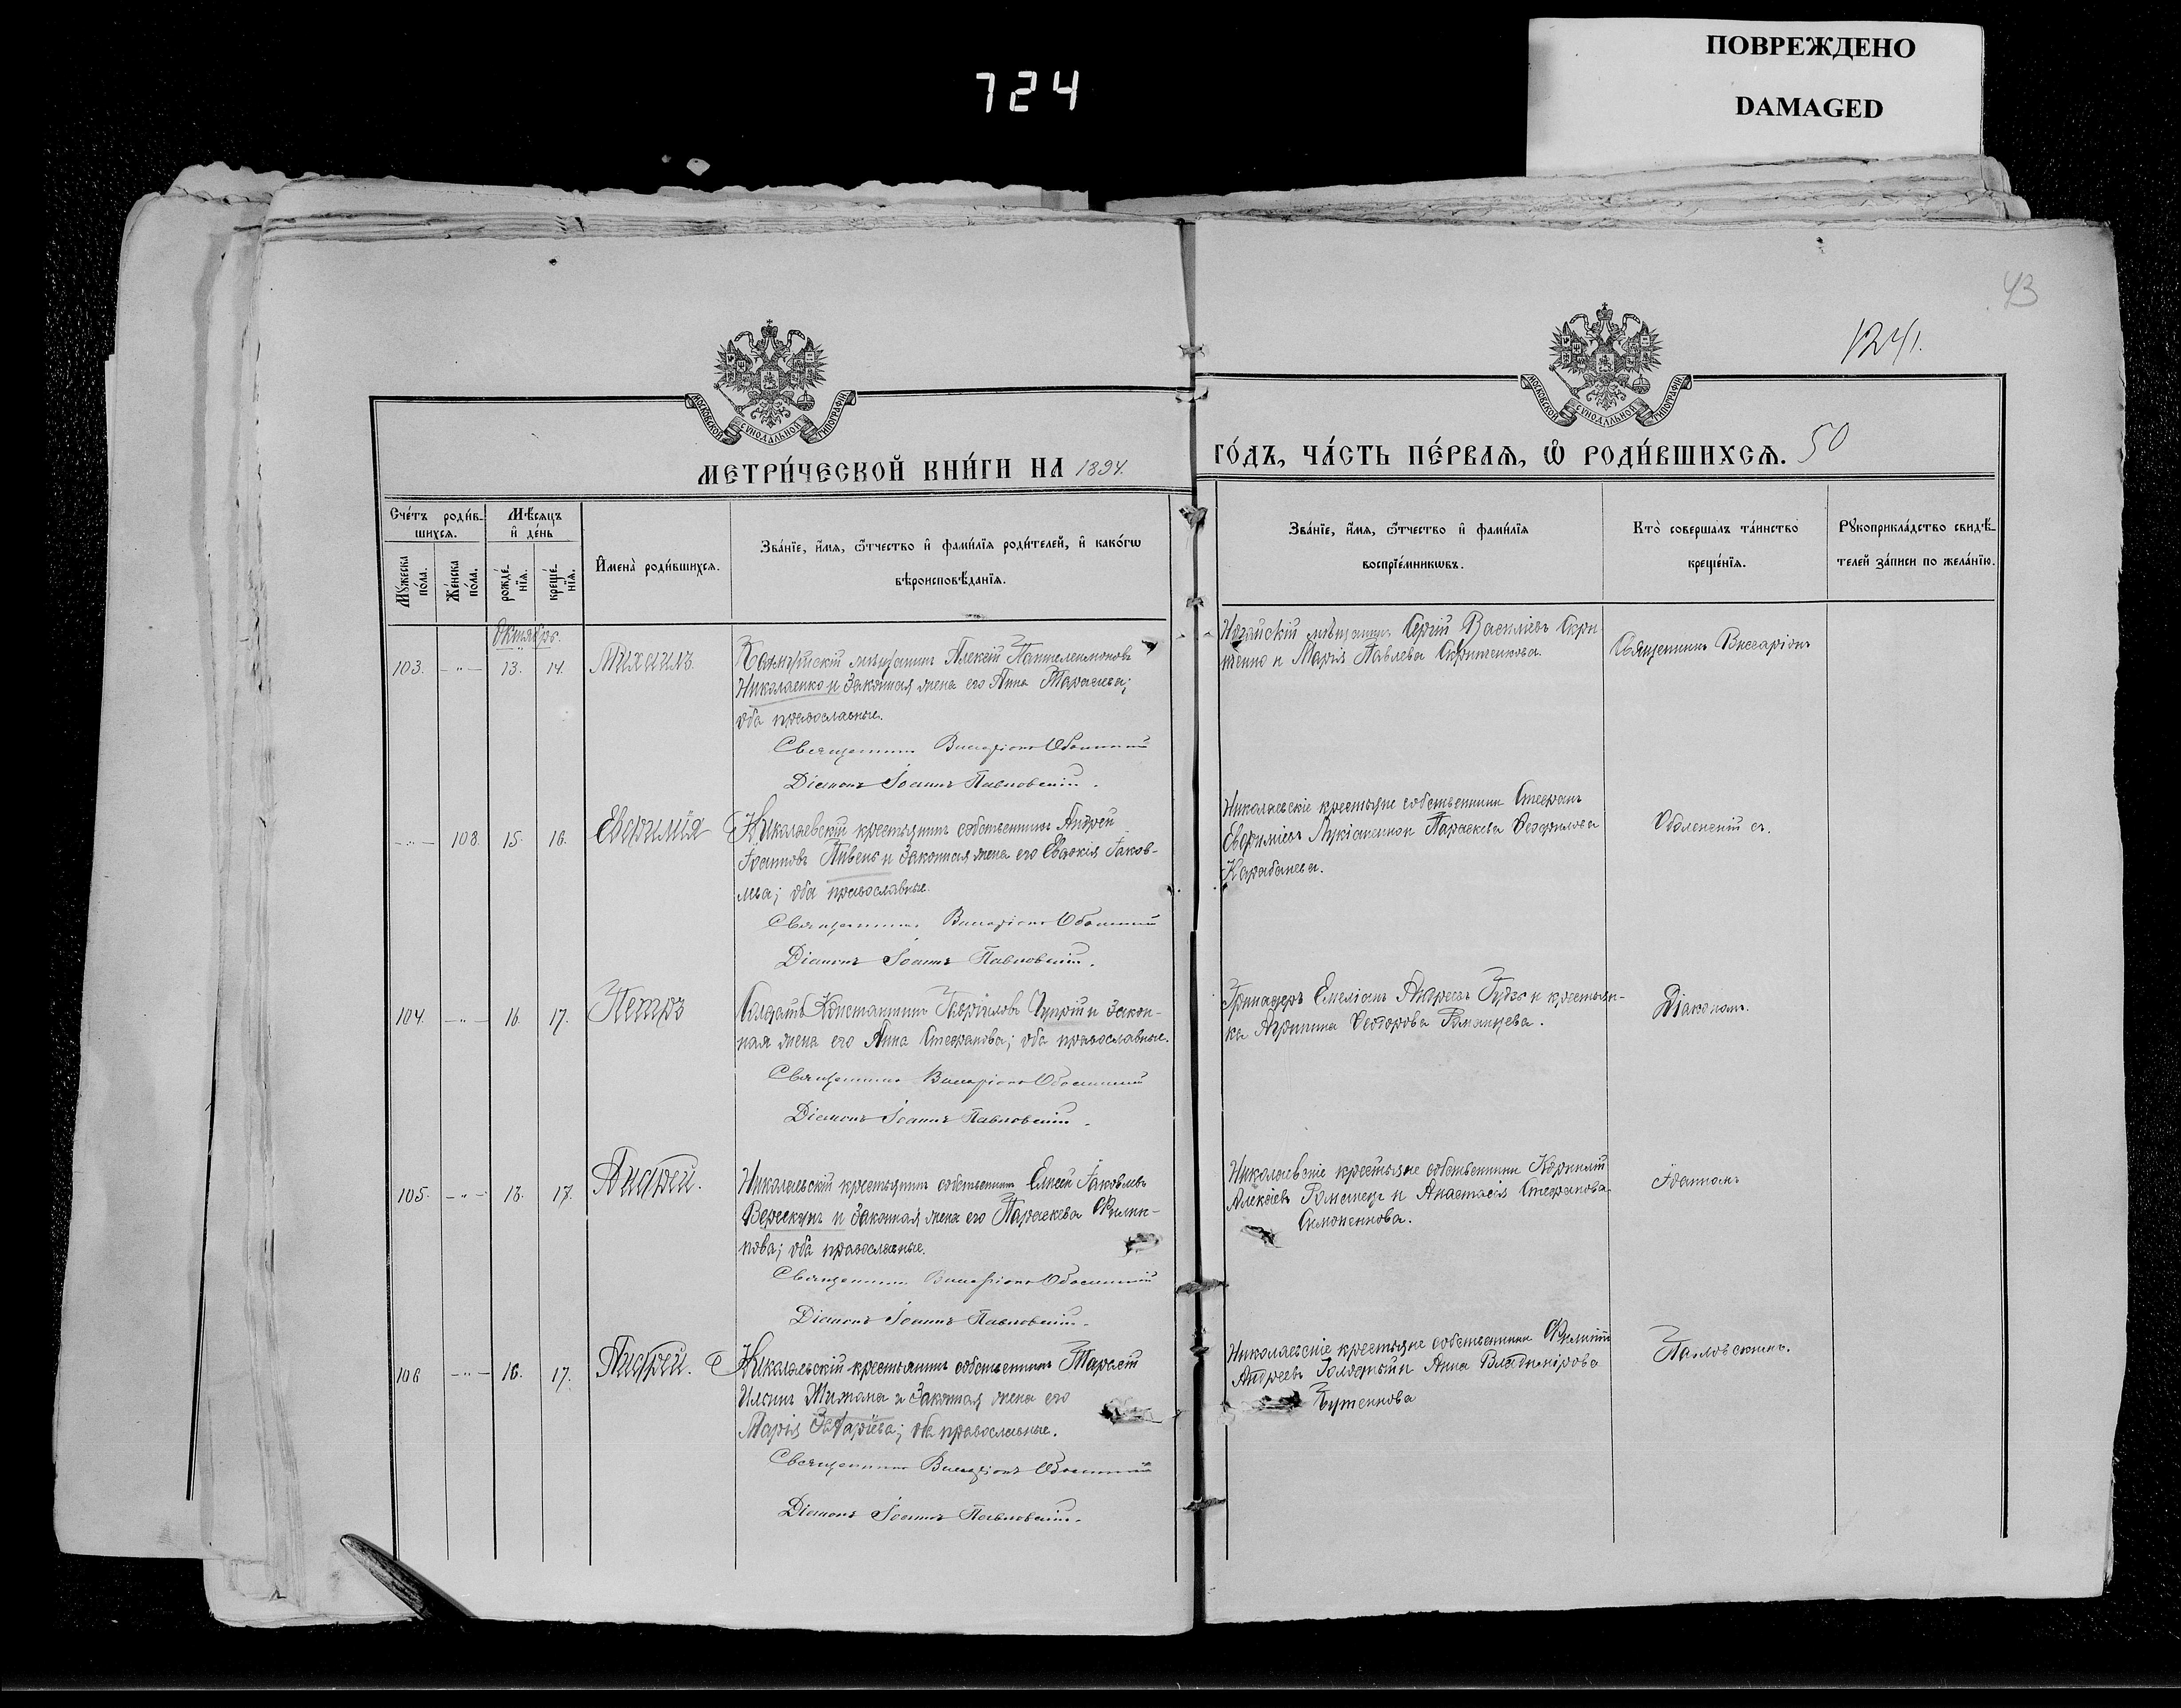 ПОВРЕЖДЕНО
DAMAGED
724
43
1241.
МОСКОВСКОЙ СѴНОДАЛЬНОЙ ТИПОГРАФІИ
МОСКОВСКОЙ СѴНОДАЛЬНОЙ ТИПОГРАФІИ
МЕТРИ́ЧЕСКОЙ КНИ́ГИ НА 1894.
ГО́ДЪ, ЧА́СТЬ ПЕ́РВАѦ, Ѡ҆ РОДИ́ВШИХСѦ. 50
Сче́тъ роди́в-
шихсѧ.
Мꙋ́жеска по́ла.
Же́нска по́ла.
Мѣ́сѧцъ и҆ де́нь
рожде́-нїѧ.
креще́-нїѧ.
И҆мена̀ роди́вшихсѧ.
Зва́нїе, и҆́мѧ, ѻ҆́тчество и҆ фами́лїѧ роди́телей, и҆ како́гѡ
вѣроисповѣ́данїѧ.
Зва́нїе, и҆́мѧ, ѻ҆́тчество и҆ фами́лїѧ
воспрїе́мникѡвъ.
Кто̀ соверша́лъ та́инство
креще́нїѧ.
Рꙋкоприкла́дство свидѣ́-
телей за́писи по жела́нїю.
Октябрь.
103. -"- 13. 14. Михаилъ
мѣщанинъ Алексій Пантелеимоновъ
Николаенко и законная жена его Анна Тарасьева;
оба православные.
Священникъ Виссаріонъ Оболенскій
Діаконъ Іоаннъ Павловскій.
Ногайскій мѣщанинъ Сергій Василіевъ Скри
пченко и Марія Павлева Скрипченкова.
Священникъ Виссаріонъ
-"- 108. 15. 16. Евфимія
Николаевскій крестьянинъ собственникъ Андрей
Іоанновъ Пивень и законная жена его Евдокія Іаков-
лева; оба православные.
Священникъ Виссаріонъ Оболенскій
Діаконъ Іоаннъ Павловскій.
Николаевскіе крестьяне собственники Стефанъ
Евфиміевъ Лукіаненко и Параскева Ѳеофилова
Карабанева.
Оболенскій съ.
104. -"- 16. 17. Петръ
Солдатъ Константинъ Гавріиловъ и закон-
ная жена его Анна Стефанова; оба православные.
Священникъ Виссаріонъ Оболенскій
Діаконъ Іоаннъ Павловскій.
Емеліанъ Андреевъ и крестьян-
ка Агрипина Ѳеодорова Романцева.
Діакономъ
105. -"- 13. 17. Андрей.
Николаевскій крестьянинъ собственникъ Елисей Іаковлевъ
Верескунъ и законная жена его Параскева Филип-
пова; оба православные.
Священникъ Виссаріонъ Оболенскій
Діаконъ Іоаннъ Павловскій.
Николаевскіе крестьяне собственники Корнилій
Алексіевъ Романецъ и Анастасія Стефанова
Симоненкова.
Іоанномъ
106 -"- 16. 17. Андрей.
Николаевскій крестьянинъ собственникъ Тарасій
Ильинъ и законная жена его
Марія Захаріева; оба православные.
Священникъ Виссаріонъ Оболенскій
Діаконъ Іоаннъ Павловскій.
Николаевскіе крестьяне собственники Филиппъ
Андреевъ и Анна Владимірова
Луценкова
Павловскимъ.